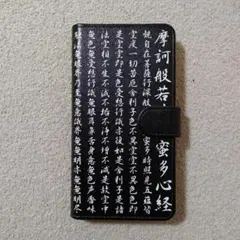 摩訶般若 蜜多心経
観自在菩薩行深般 蜜多時照見五蘊皆
空度一切苦厄舎利子色不異空空不異色色即
是空空即是色受想行識亦復如是舎利子是諸
法空相不生不滅不垢不浄不増不減是故空中
無色無受想行識無眼耳鼻舌身意無色声香味
触法無眼界乃至無意識界無無明亦無無明尽